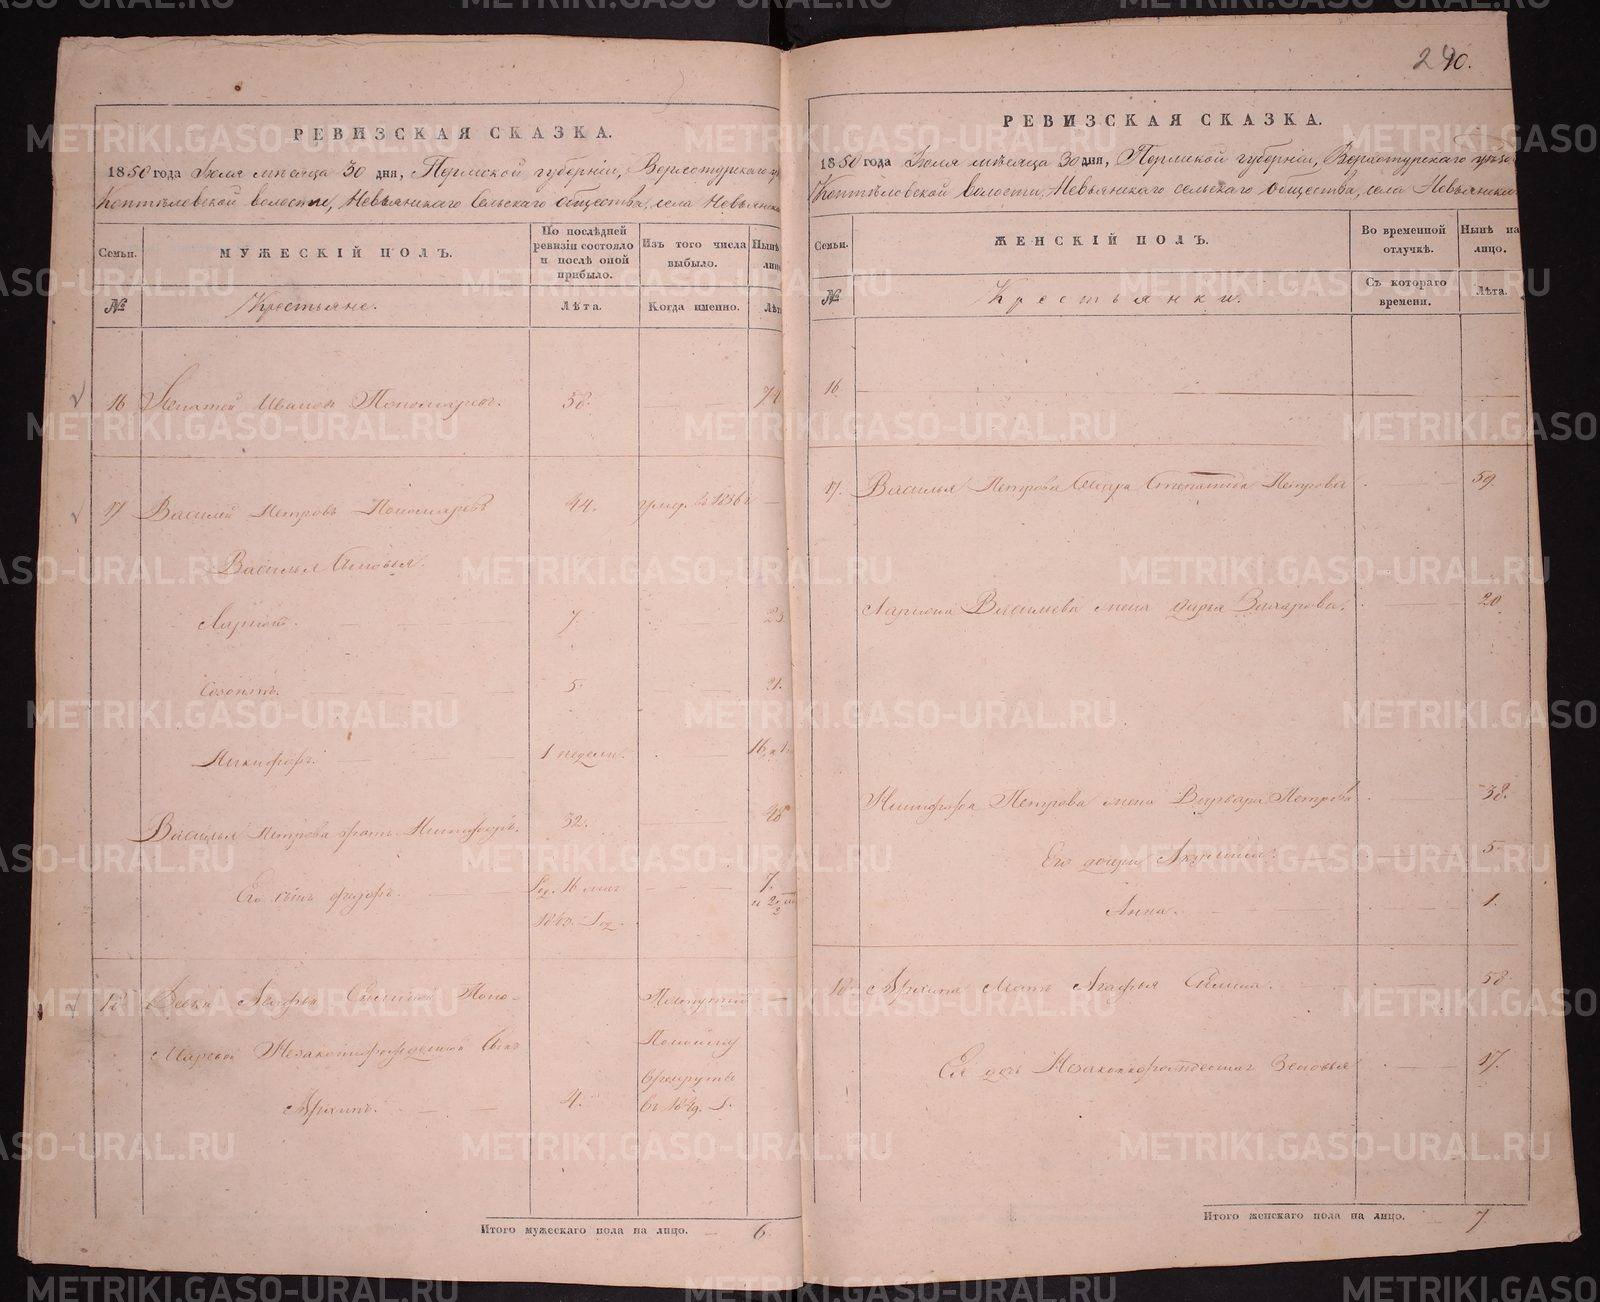 РЕВИЗСКАЯ СКАЗКА.
1850 года Іюля мѣсяца 30 дня, Пермской губерніи, Верхотурскаго
Коптѣловской волости, Невьянскаго Сельскаго общества, села Невьянска
Семьи.
МУЖЕСКІЙ ПОЛЪ.
По послѣдней ревизіи состояло и послѣ оной прибыло.
Изъ того числа выбыло.
Нынѣ
№
Крестьяне.
Лѣта.
Когда именно.
16 Игнатей Ивановъ Пономаревъ. 58. 74
17 Василей Петровъ Пономаревъ 44. умер. въ 1836
Василья Сыновья.
Ларионъ. 7 23
Созонтъ. 5 21.
Никифоръ. 1 недели. 16
Василья Петрова братъ Никифоръ. 32. 48
Его сынъ Федоръ. 16 7.
1843.
18 Девки Агафьи Поно-
маревой Незаконнорожденной Сынъ
Архипъ. 4. Поступилъ
врекруты
въ 1849
Итого мужескаго пола на лицо. 6
240.
РЕВИЗСКАЯ СКАЗКА.
1850 года Іюля мѣсяца 30 дня, Пермской губерніи, Верхотурскаго уѣзда
Коптѣловской волости, Невьянскаго сельскаго общества, села Невьянска
Семьи.
ЖЕНСКІЙ ПОЛЪ.
Во временной отлучкѣ.
Нынѣ на лицо.
№
Крестьянки.
Съ котораго времени.
Лѣта.
16
17. Василья Петрова Степанида Петрова 59
Лариона Васильева жена Дарья Захарова. 20
Никифора Петрова жена Варвара Петрова 38.
Его дочери 5
Анна. 1.
18 Архипа Мать Агафья 58
Ея дочь Незаконнорожденная Зеновья 17.
Итого женскаго пола на лицо. 7
METRIKI.GASO-URAL.RU